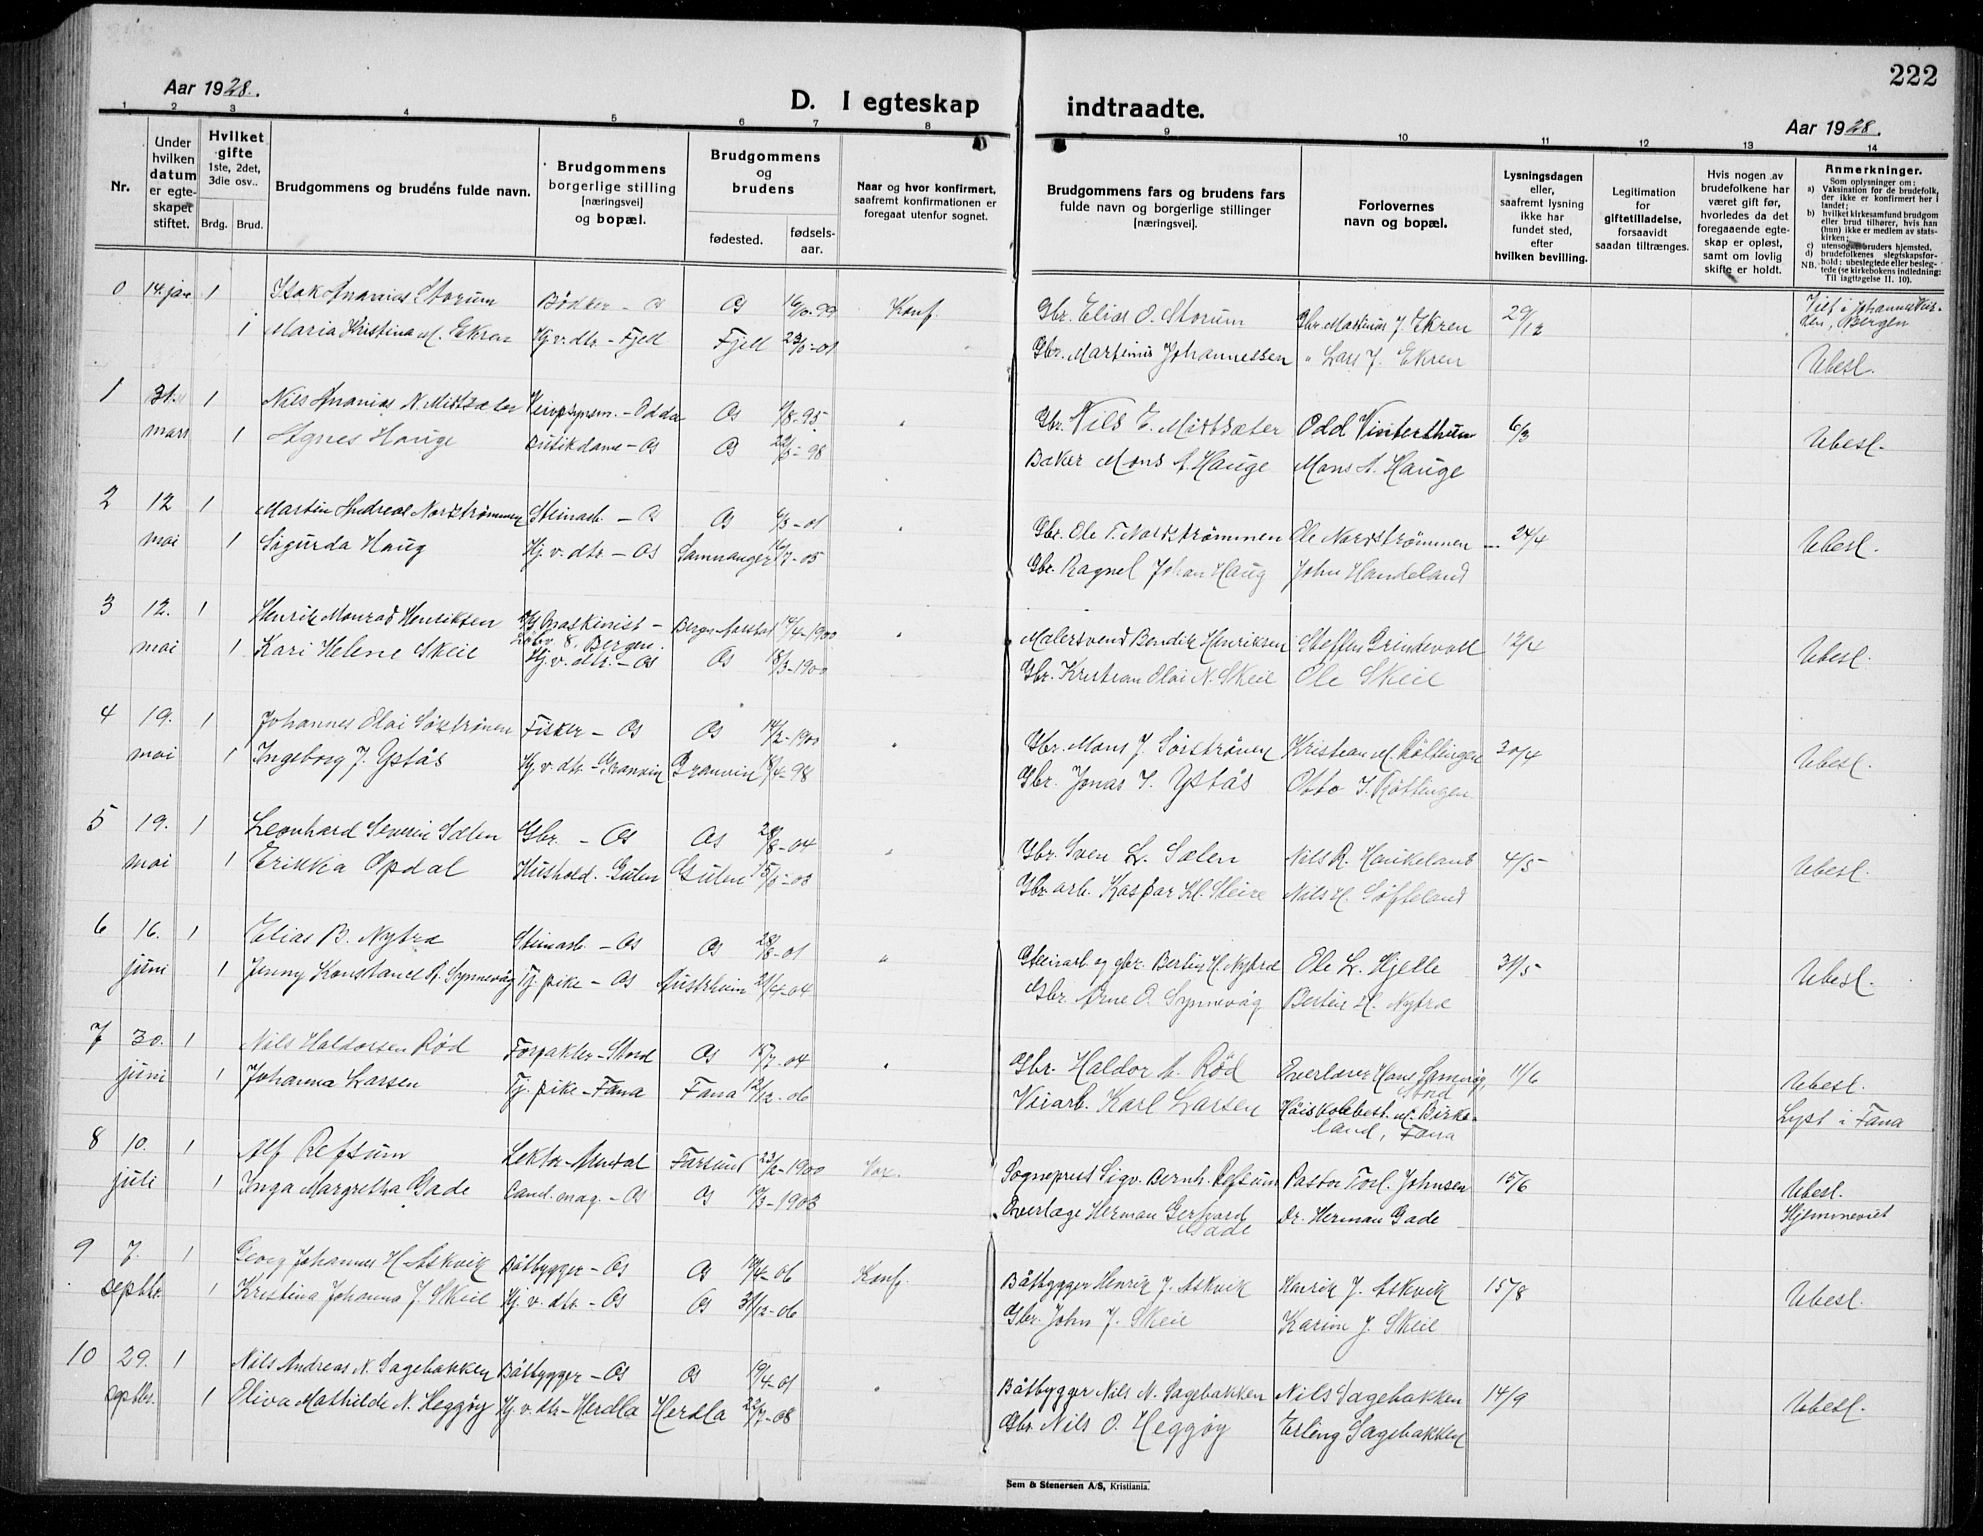 222
Aar 1928.
D. I egteskap indtraadte.
Aar 1928.
1 2 3 4 5 6 7 8 9 10 11 12 13 14
Nr.
Under hvilken datum er egteskapet stiftet.
Hvilket gifte 1ste, 2det, 3die osv..
Brdg. Brud.
Brudgommens og brudens fulde navn.
Brudgommens borgerlige stilling [næringsvei] og bopæl.
Brudgommens og brudens
fødested.
fødselsaar.
Naar og hvor konfirmert, saafremt konfirmationen er foregaat utenfor sognet.
Brudgommens fars og brudens fars fulde navn og borgerlige stillinger [næringsvei].
Forlovernes navn og bopæl.
Lysningsdagen eller, saafremt lysning ikke har fundet sted, efter hvilken bevilling.
Legitimation for giftetilladelse, forsaavidt saadan tiltrænges.
Hvis nogen av brudefolkene har været gift før, hvorledes da det foregaaende egteskap er opløst, samt om lovlig skifte er holdt.
Anmerkninger.
Som oplysninger om:
a) Vaksination for de brudefolk, der ikke er konfirmert her i landet;
b) hvilket kirkesamfund brudgom eller brud tilhører, hvis han (hun) ikke er medlem av statskirken;
c) utensognsbruders hjemsted,
d) brudefolkenes slegtskapsforhold; ubeslegtede eller beslegtede (se kirkebokens indledning:
NB. Til iagttagelse II. 10).
0 14. jan 1 Isak Ananias Storum Bødker - Os Os 16/10-99 Konf. Gbr. Elias O. Storum Gbr. Martinus J. Ekren 29/12 Viet i Johanneskirken, Bergen
1 Maria Kristina M. Ekren Hj. v. dtr. - Fjell Fjell 01 Gbr. Martinus Johannessen " Lars J. Ekren Ubesl.
1 31. 1 Nils Ananias N. Midtsæter - Odda Os 1/8-95 " Gbr. Nils E. Midtsæter Odd Vinterthun 6/3
mars 1 Agnes Hauge Butikdame - Os Os 98 Baker Mons A. Hauge Mons A. Hauge Ubesl.
2 12 1 Martin Andreas Nordstrømmen Steinarb. - Os Os 01 " Gbr. Ole T. Nordstrømmen Ole Nordstrømmen 24/4
mai 1 Sigurda Haug Hj. v. dtr. - Os Samnanger 16/7-05 Gbr. Ragnel Johan Haug John Handeland Ubesl.
3 12. 1 Henrik Monrad Henriksen Maskinist - 8, Bergen. Bergen Aarstad 17/4-1900 " Malersvend Bendik Henriksen Steffen Grindevoll 12/4
mai 1 Kari Helene Skeie Hj. v. dtr. - Os Os 18/3-1900 Gbr. Kristian Olai N. Skeie Ole Skeie Ubesl.
4 19. 1 Johannes Olai Sørstrønen Fisker - Os Os 14/2-1900 " Gbr. Mons J. Sørstrønen Kristian M. Røttingen 30/4
mai 1 Ingeborg J. Ystås Hj. v. dtr. - Granvin Granvin 18/4-98 Gbr. Jonas I. Ystås Otto I. Røttingen Ubesl.
5 19. 1 Leonhard Severin Sælen Gbr. - Os Os 28/8-04 " Gbr. Sven L. Sælen Nils R. Haukeland 4/5
mai 1 Erikka Opdal Hushold. - Gulen Gulen 03 Gbr arb. Kaspar Kl. Steire Nils H. Søfteland Ubesl.
6 16. 1 Elias B. Nytræ Steinarb. - Os Os 28/8-01 " Steinarb. og gbr. Bertin H. Nytræ Ole L. Hjelle 31/5
juni 1 Jenny Konstanse R. Synnevåg Tj. pike - Os Austrheim 21/4-04 Gbr. Arne O. Synnevåg Bertin H. Nytræ Ubesl.
7 30. 1 Nils Haldorsen Rød Forpakter - Stord Os 15/7-04 " Gbr. Haldor A. Rød Overlærer Hans Stord 11/6
juni 1 Johanna Larsen Tj. pike - Fana Fana 12/12-06 Veiarb. Karl Larsen Høiskolebest. M. Birkeland, Fana Ubesl. Lyst i Fana
8 10. 1 Alf Refsum Lektor - Arendal Farsund 23/2-1900 Vox. Sogneprest Sigv. Bernh. Refsum Pastor Torl. Johnsen 15/6
juli 1 Inga Margretha Gade Cand. mag. - Os Os 19/3-1903 Overlæge Herman Gerhard Gade Dr. Herman Gade Ubesl. Hjemmeviet
9 7. 1 Georg Johannes H. Askvik Båtbygger - Os Os 19/4-06 Konf. Båtbygger Henrik J. Askvik Henrik J. Askvik 15/8
septbr. 1 Kristina Johanna J. Skeie Hj. v. dtr. - Os Os 31/12-06 Gbr. John J. Skeie Karin J. Skeie Ubesl.
10 29. 1 Nils Andreas N. Sagebakken Båtbygger - Os Os 19/4-01 " Båtbygger Nils N. Sagebakken Nils Sagebakken 14/9
septbr. 1 Oliva Mathilde N. Heggøy Hj. v. dtr. - Herdla Herdla 22/7-08 Gbr. Nils O. Heggøy Erling Sagebakken Ubesl.
Sem & Stenersen A/S, Kristiania.